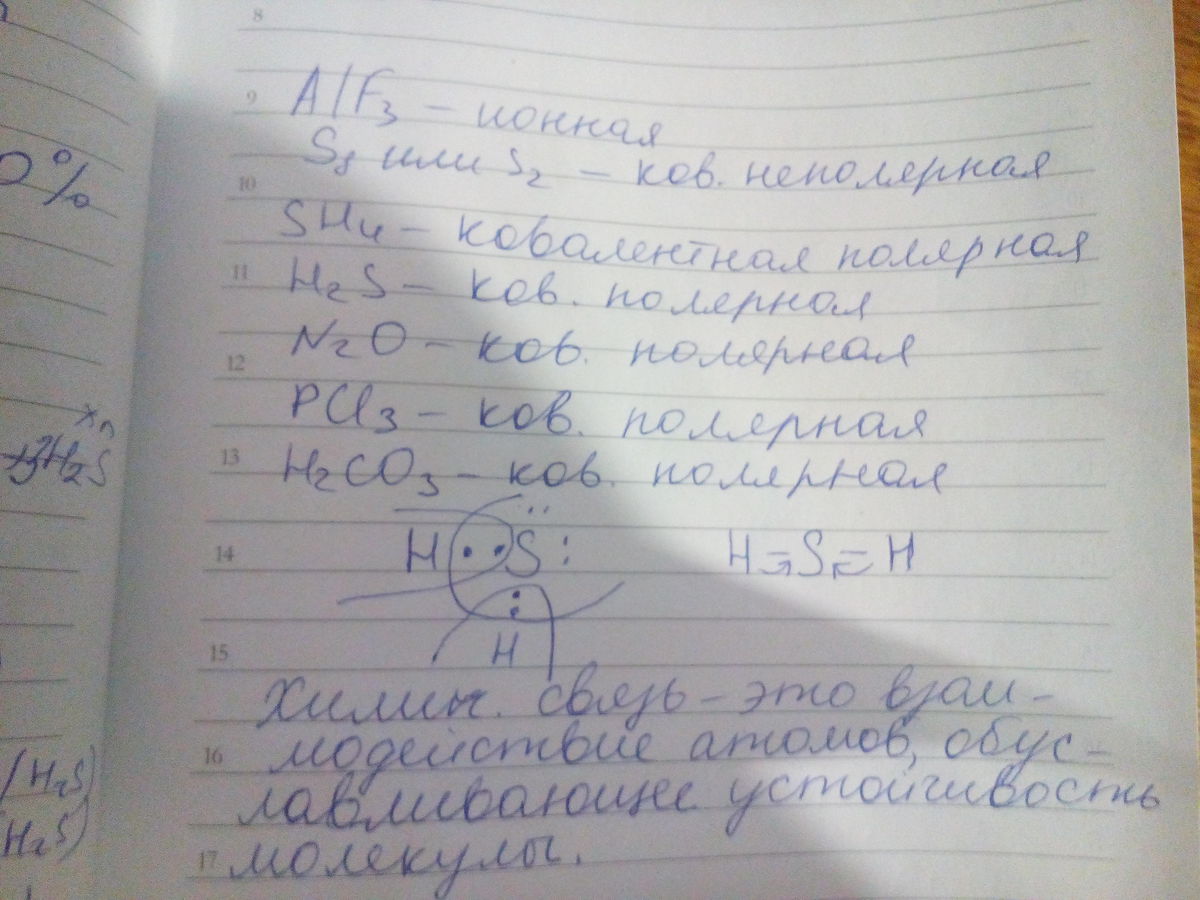 8
9 AlF3 – ионная
S8 или S2 – ков. неполярная
10
SH4 – ковалентная полярная
11 H2S – ков. полярная
N2O – ков. полярная
12
PCl3 – ков. полярная
13 H2CO3 – ков. полярная
14 H : S : H S H
H
15
Химич. связь – это взаи-
16 модействие атомов, обус-
лавливающее устойчивость
17 молекулы.
0%
xn
H2S
(H2S)
H2S)